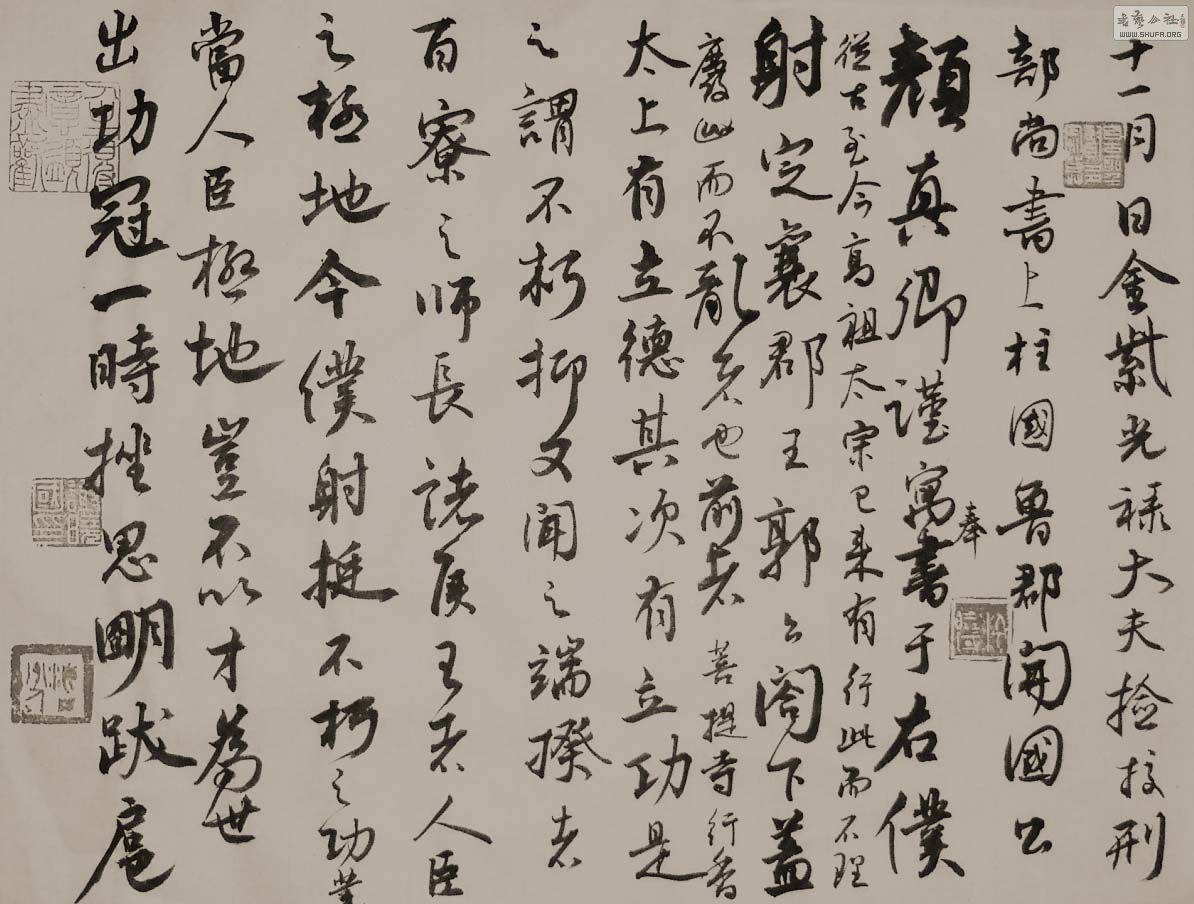 十一月日金紫光禄大夫撿挍刑
部尚書上柱國魯郡開國公
奉
顏真卿謹寓書于右僕
從古至今高祖太宗已来有行此而不理
射定襄郡王郭公閤下蓋
廢此而不亂者也前者菩提寺行香
太上有立德其次有立功是
之謂不朽抑又聞之端揆者
百寮之師長諸侯王者人臣
之極地今僕射挺不朽之功業
當人臣極地豈不以才為世
出功冠一時挫思明跋扈
WWW.SHUFA.ORG